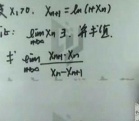 设 X₁>0. Xₙ₊₁=ln(1+Xₙ)
lim Xₙ 3. 并求值.
n→∞
求 lim n→∞ (Xₙ₊₁·Xₙ)/(Xₙ-Xₙ₊₁)